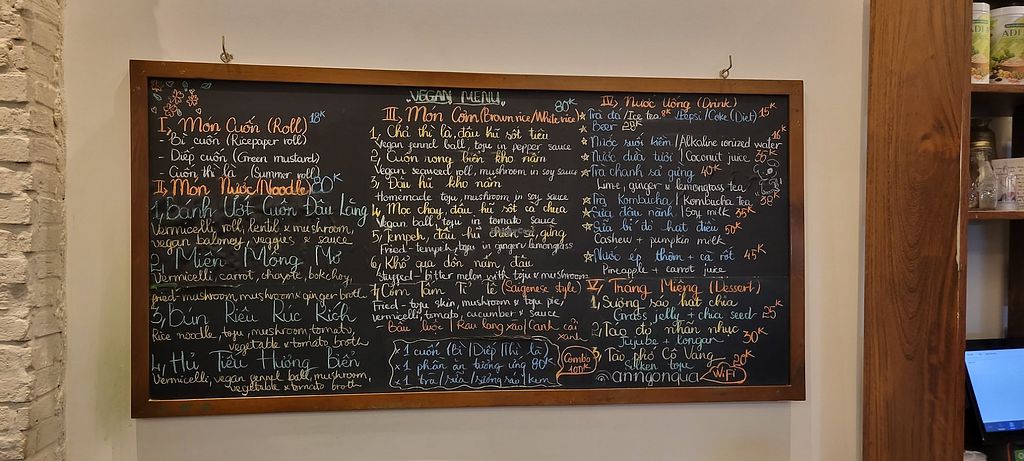 VEGAN MENU
I, Món Cuốn (Roll) 18K
- Bì cuốn (Ricepaper roll)
- Diếp cuốn (Green mustard)
- Cuốn thì là (Summer roll)
II, Món Nước/Noodle) 80K
1, Bánh Ướt Cuốn Đậu Lăng
Vermicelli, roll, lentil & mushroom,
vegan baloney, veggies & sauce
2, Miến Mộng Mơ
Vermicelli carrot, chayote, bokchoy,
fried-mushroom, mushroom & ginger broth
3, Bún Riêu Rúc Rích
Rice noodle, tofu, mushroom, tomato,
vegetable & tomato broth
4, Hủ Tiếu Hương Biển
Vermicelli, vegan fennel ball, mushroom,
vegetable & tomato broth
III, Món Cơm (Brown rice/White rice) 80K
1, Chả thì là, đậu hũ sốt tiêu
Vegan fennel ball, tofu in pepper sauce
2, Cuộn rong biển kho nấm
Vegan seaweed roll, mushroom in soy sauce
3, Đậu hũ kho nấm
Homemade tofu, mushroom in soy sauce
4, Mọc chay, đậu hũ sốt cà chua
Vegan ball, tofu in tomato sauce
5, Tempeh, đậu hũ chiên sả, gừng
Fried-tempeh, tofu in ginger/lemongrass
6, Khổ qua dồn nấm, đậu
Stuffed-bitter melon with tofu & mushroom
7, Cơm Tấm Tỉ Tê (Saigonese style)
Fried-tofu skin, mushroom & tofu pie,
vermicelli, tomato, cucumber & sauce
- Bầu luộc / Rau lang xào / Canh cải xanh
x 1 cuốn (Bì / Diếp / Thì là
x 1 phần ăn tương ứng 80K
x 1 trà / sữa / sương sáo / kem
Combo
100K
IV, Nước Uống (Drink)
Trà đá / Ice tea 8K Pepsi / Coke (Diet) 15K
Beer 28K
Nước suối kiềm / Alkaline ionized water 16K
Nước dừa tươi / Coconut juice 35K
Trà chanh sả gừng 40K
Lime, ginger & lemongrass tea
Trà Kombucha / Kombucha Tea 38K
Sữa đậu nành / Soy milk 35K
Sữa bí đỏ hạt điều 50K
Cashew + pumpkin milk
Nước ép thơm + cà rốt 45K
Pineapple + carrot juice
V, Tráng Miệng (Dessert)
1, Sương sáo hạt chia
Grass jelly + chia seed 25K
2, Táo đỏ nhãn nhục
Jujube + longan 30K
3, Tào phớ Cô Vàng 20K
Silken tofu
annngonqua WiFi